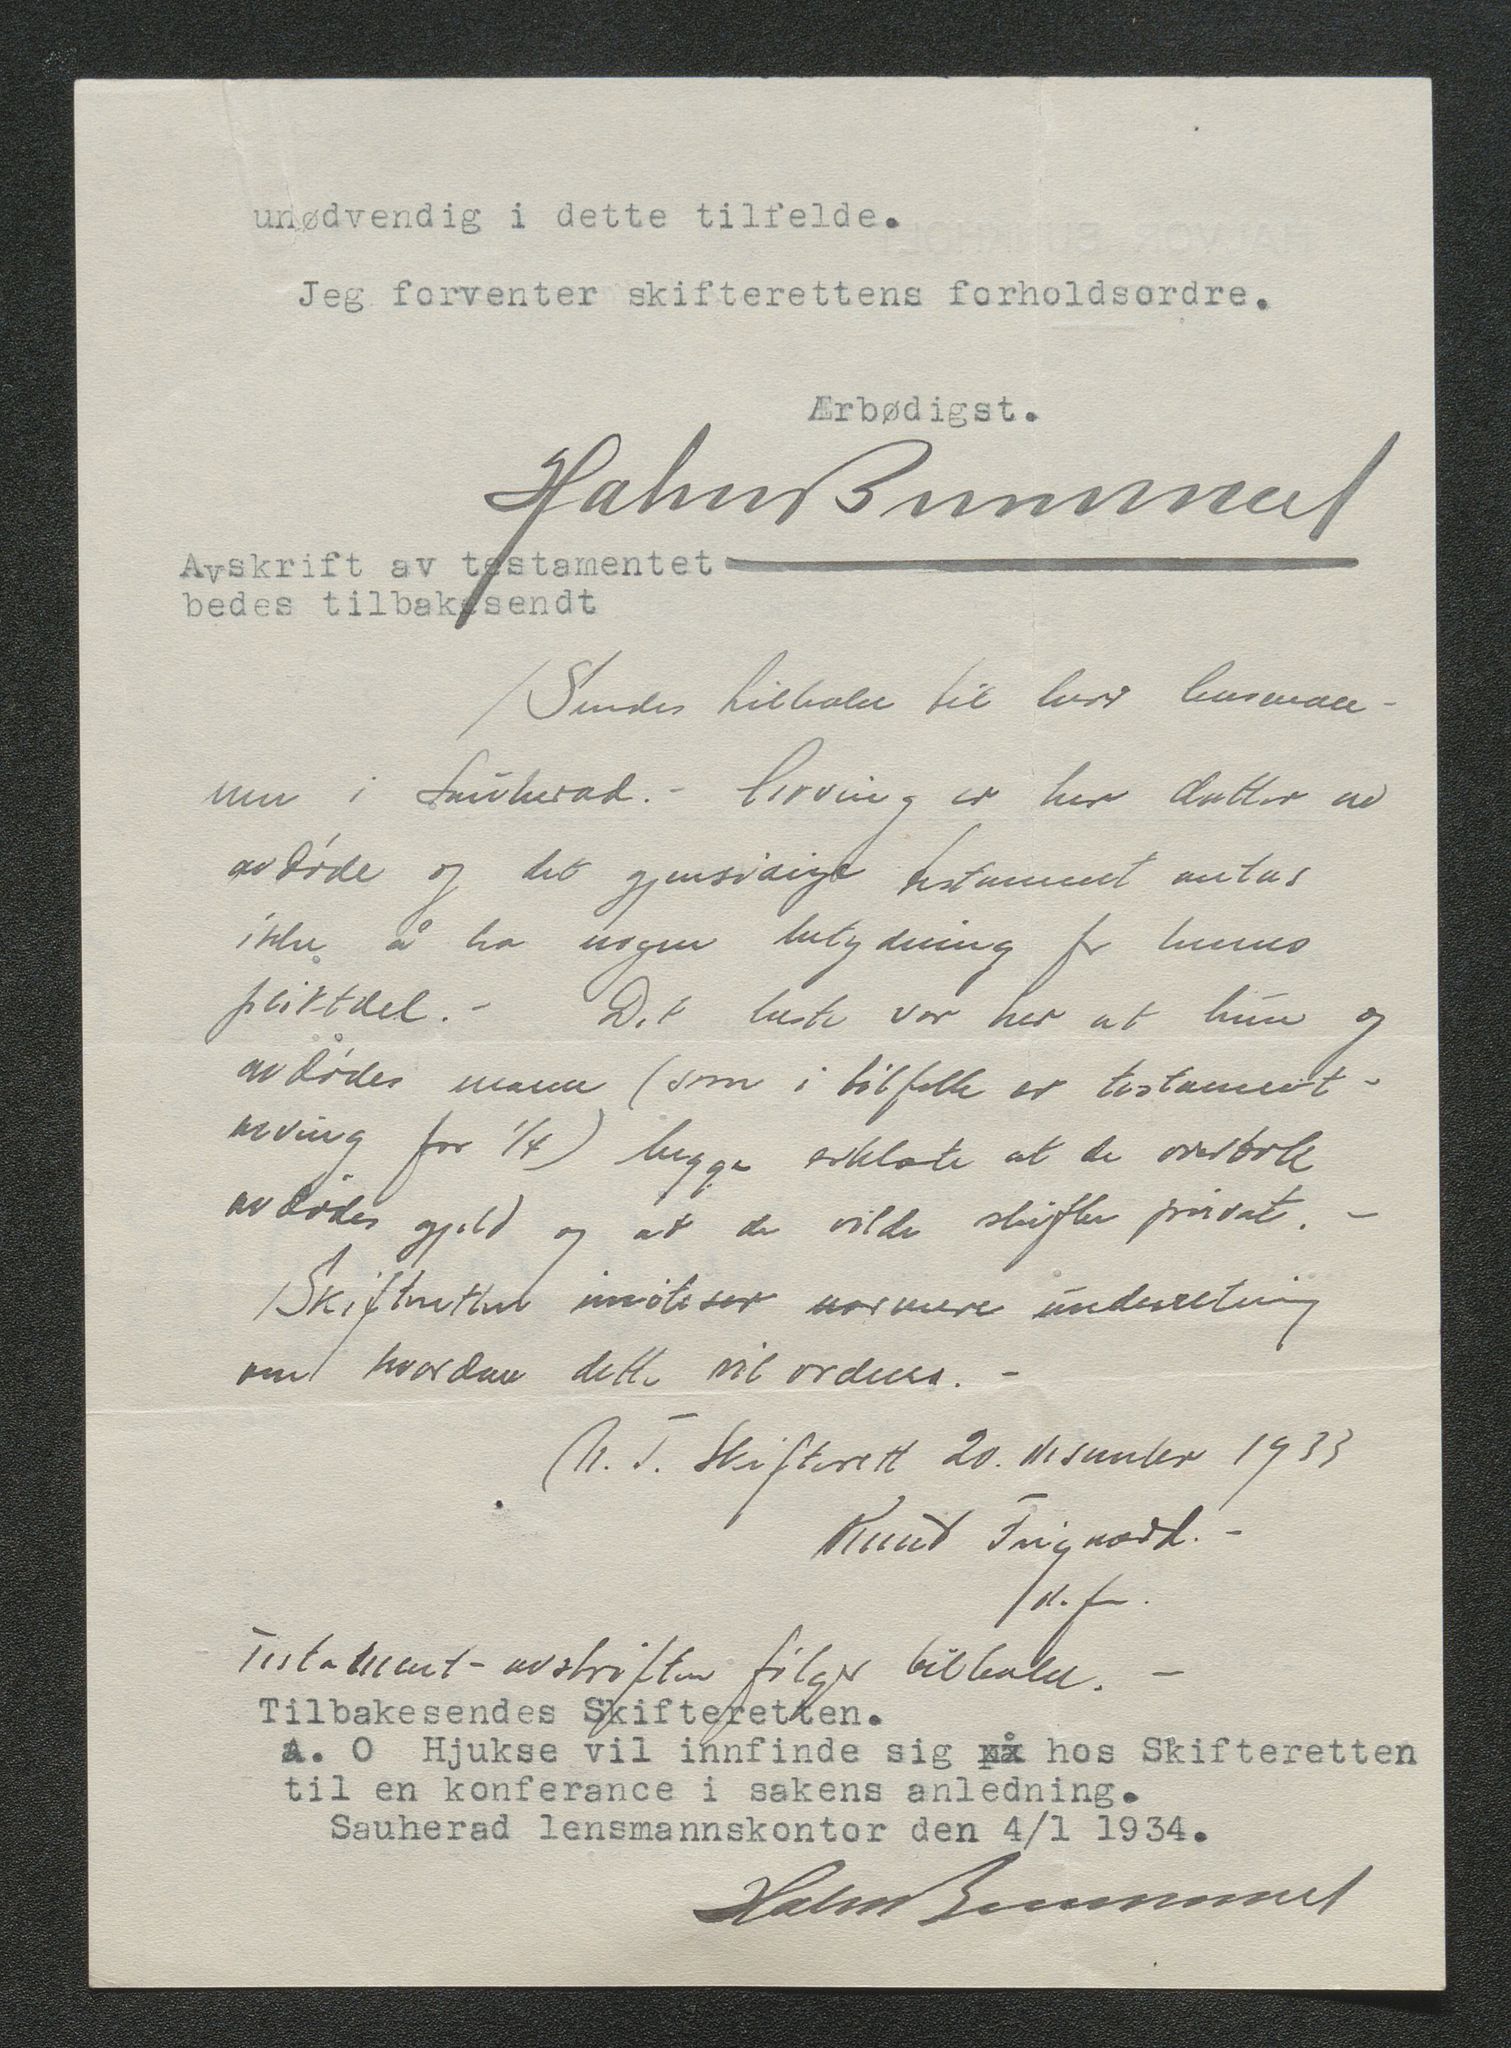 unødvendig i dette tilfelde.
Jeg forventer skifterettens forholdsordre.
Ærbødigst.
Avskrift av testamentet
bedes tilbakesendt
Sendes tilbake til herr lensman-
nen i Sauherad. - Arving er her datter av
avdøde og det gjensidige testament antas
ikke å ha nogen betydning for hennes
pliktdel. - Det beste var her at hun og
avdødes mann (som i tilfelle er testament-
arving for 1/4) begge erklærte at de overtok
avdødes gjeld og at de vilde skifte privat. -
Skifteretten imøteser nærmere underretning
om hvordan dette vil ordnes. -
N. T. Skifterett 20. desember 1933
Knut
d. f.
Testament-avskriften følger tilbake. -
Tilbakesendes Skifteretten.
A. O Hjukse vil innfinde sig på hos Skifteretten
til en konferance i sakens anledning.
Sauherad lensmannskontor den 4/1 1934.